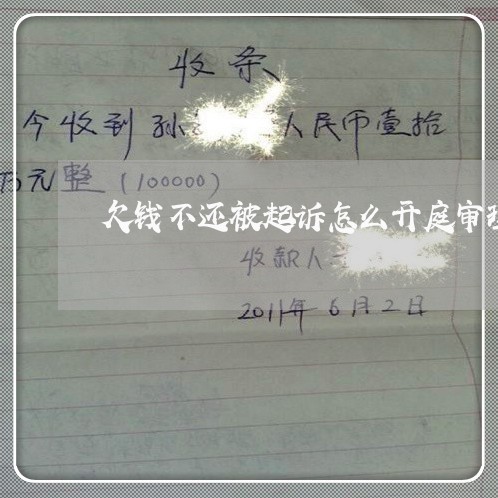 收条
今收到孙 人民币壹拾
万元整(100000)
欠钱不还被起诉怎么开庭审理
收款人
2011年6月2日